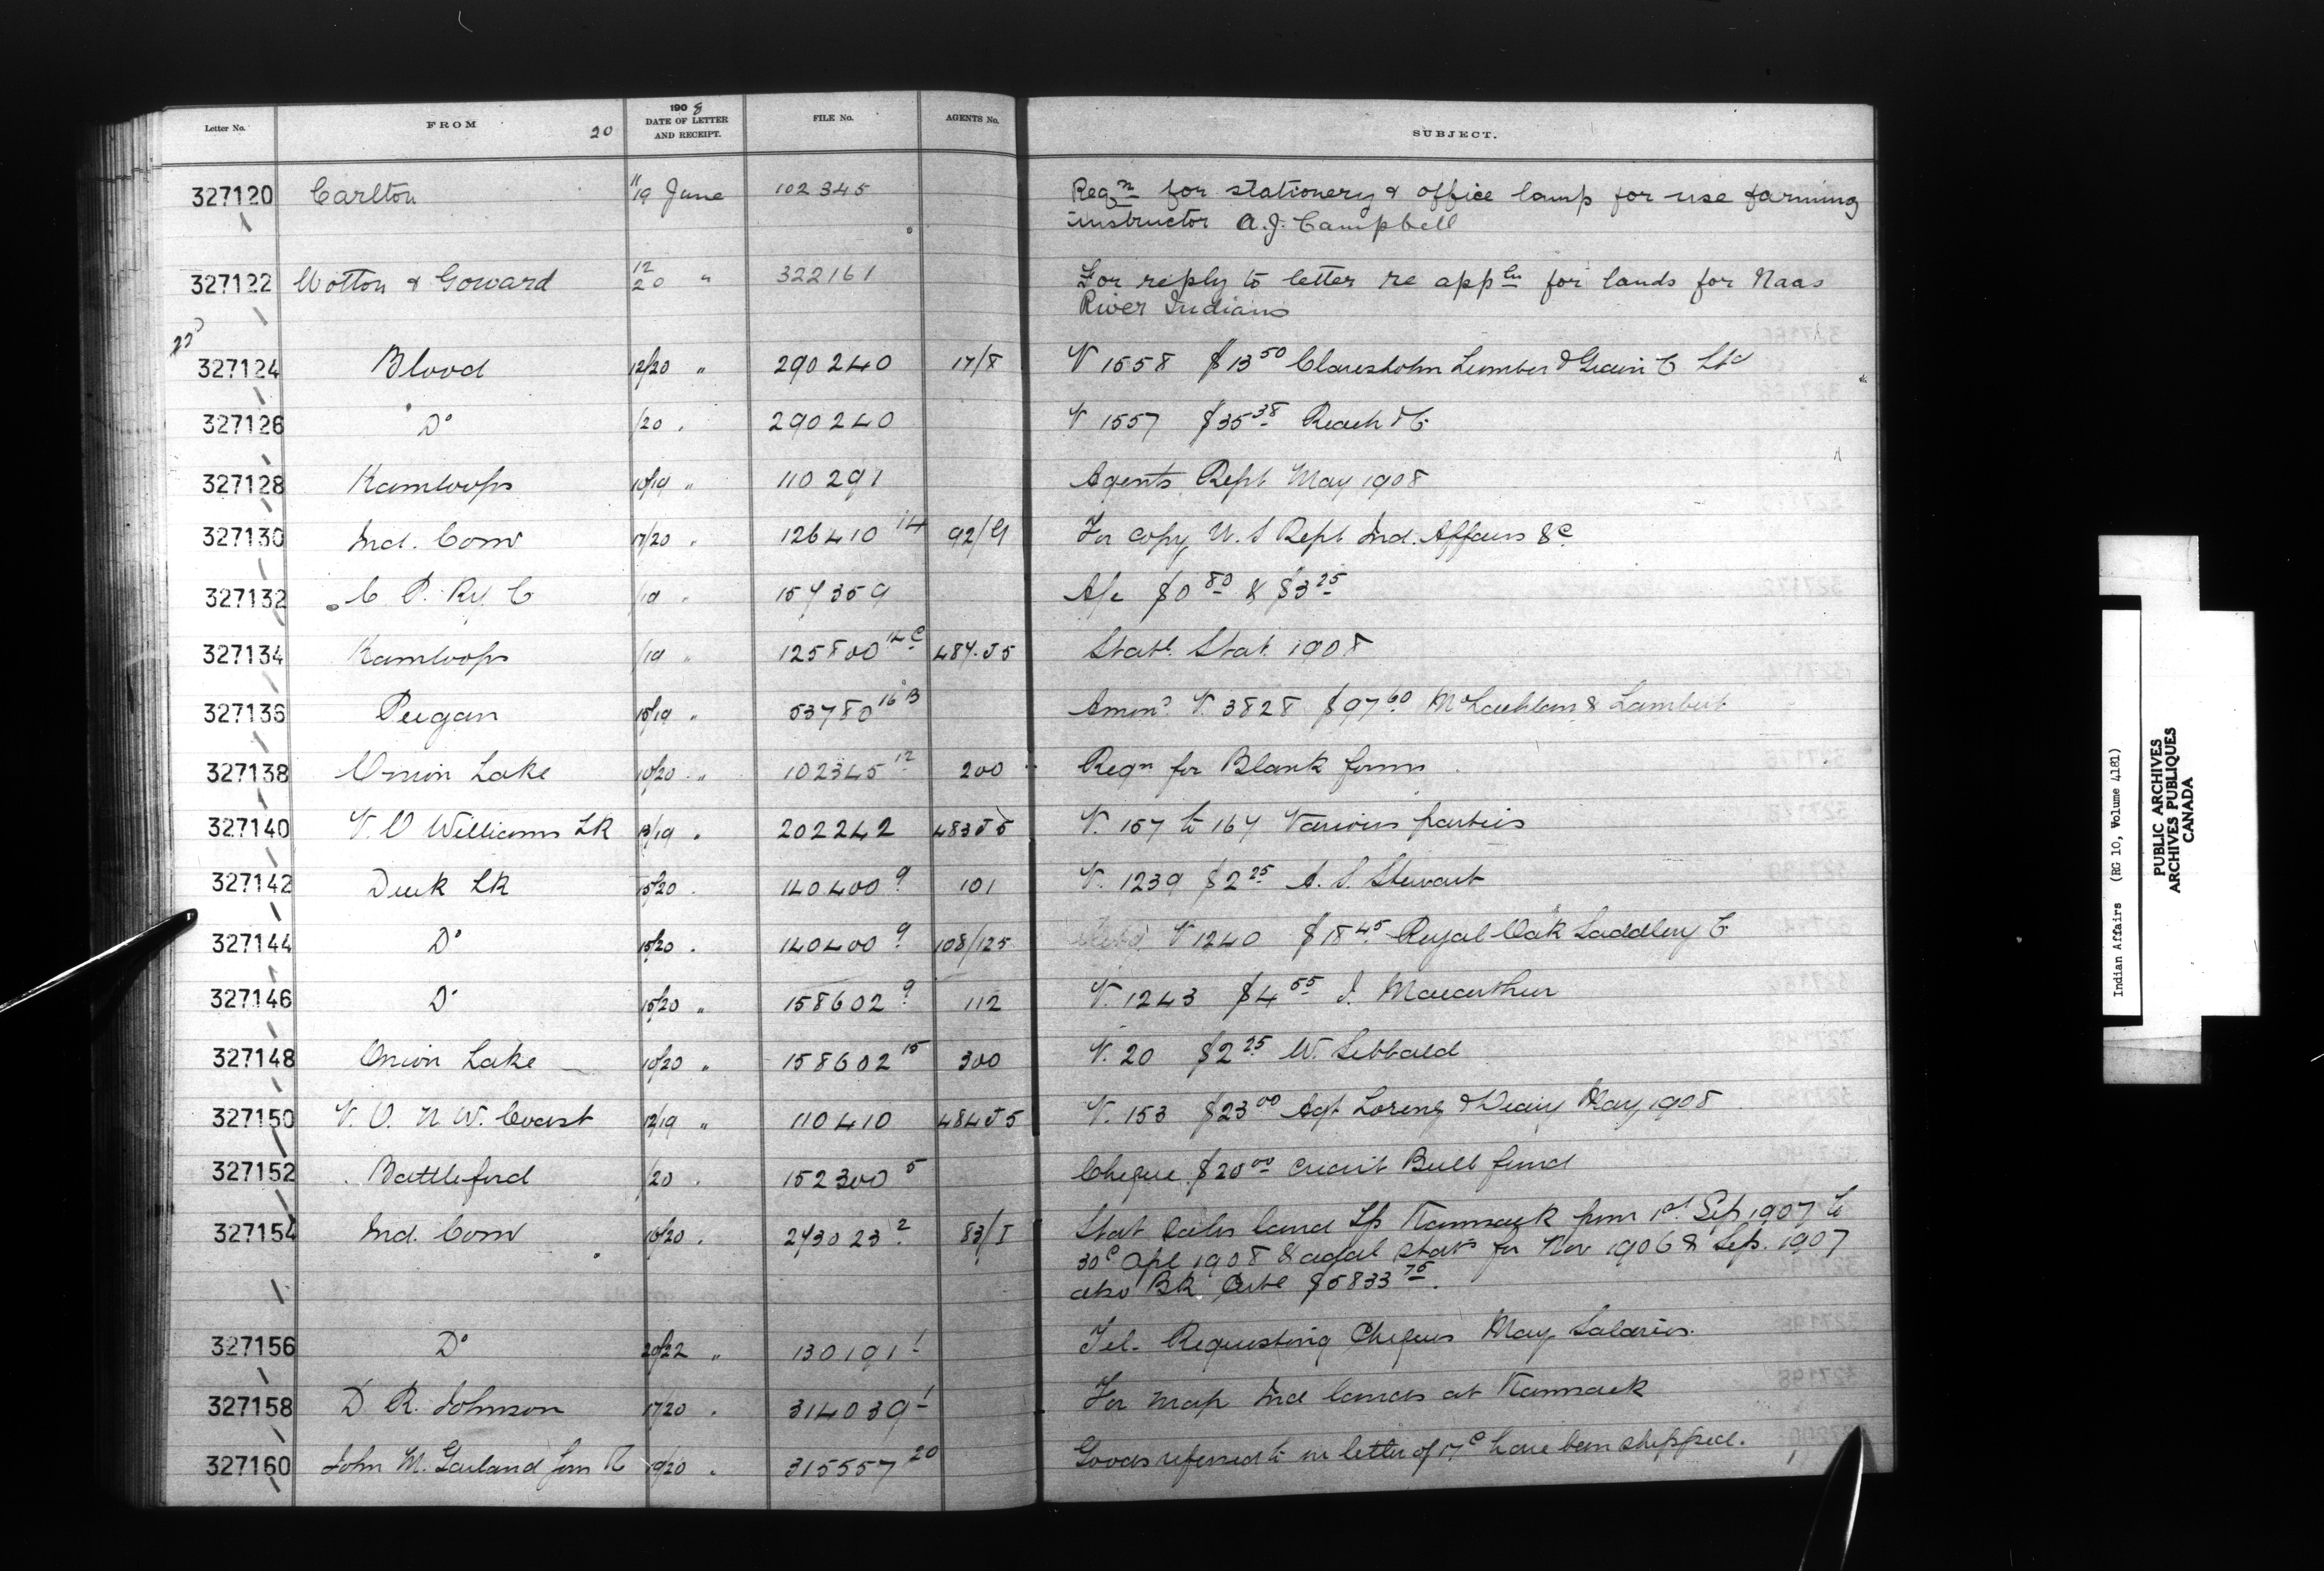 Letter No. FROM 20 1908 DATE OF LETTER AND RECEIPT. FILE No. AGENTS No. SUBJECT.
327120 Carlton 11/19 June 102345 Reqn for stationery & office lamp for use farming
instructor A.J. Campbell
327122 Wotton & Goward 12/20 " 322161 For reply to letter re appln for lands for Naas
River Indians
22
327124 Blood 12/20 " 290240 17/8 V 1558 $13 50 Claresholm Lumber & Grain C Ltd
327126 Do /20 . 290240 V 1557 $35 38 Reach & C
327128 Kamloops 10/19 " 110291 Agents Rept May 1908
327130 Ind. Com 17/20 " 126410 14 92/G For copy U.S Rept Ind. Affairs &c
327132 C P. Ry C /19 " 154359 A/c $0 80 & $3 25
327134 Kamloops /19 " 125800 14C 484.J5 Statl. Stat. 1908
327136 Peigan 15/19 " 53780 16B V. 3828 $97 60 McLachlan & Lambert
327138 Onion Lake 10/20 " 102345 12 200 Reqn for Blank forms
327140 V. O Williams LK 13/19 " 202242 483J5 V. 157 to 164 Various parties
327142 Duck LK 15/20 . 140400 9 101 V. 1239 $2 25 A. S. Stewart
327144 Do 15/20 . 140400 9 108/125 V 1240 $18 45 Royal Oak Saddlery C
327146 Do 15/20 " 158602 9 112 V. 1243 $4 55 J. Macarthur
327148 Onion Lake 10/20 " 158602 15 300 V. 20 $2 25 W. Sibbald
327150 V. O. N. W. Coast 12/19 " 110410 484J5 V. 153 $23 00 Agt Loring May 1908
327152 Battleford /20 . 152300 5 Cheque $20 00 credit Bull fund
327154 Ind. Com 16/20 . 243023 2 83/I Stat sales land Kamsack from 1st Sep 1907 to
30 Apl 1908 & stats for Nov 1906 & Sep. 1907
also BK $5833 75.
327156 Do 20/22 " 130191 1 Tel. Requesting Cheques May Salaries.
327158 D R. Johnson 17/20 . 314039 1 For map Ind lands at Kamsack
327160 John M. Garland Son 19/20 . 315557 20 Goods referred to in letter of 17 have been shipped.
Indian Affairs (RG 10, Volume 4181)
PUBLIC ARCHIVES
ARCHIVES PUBLIQUES
CANADA